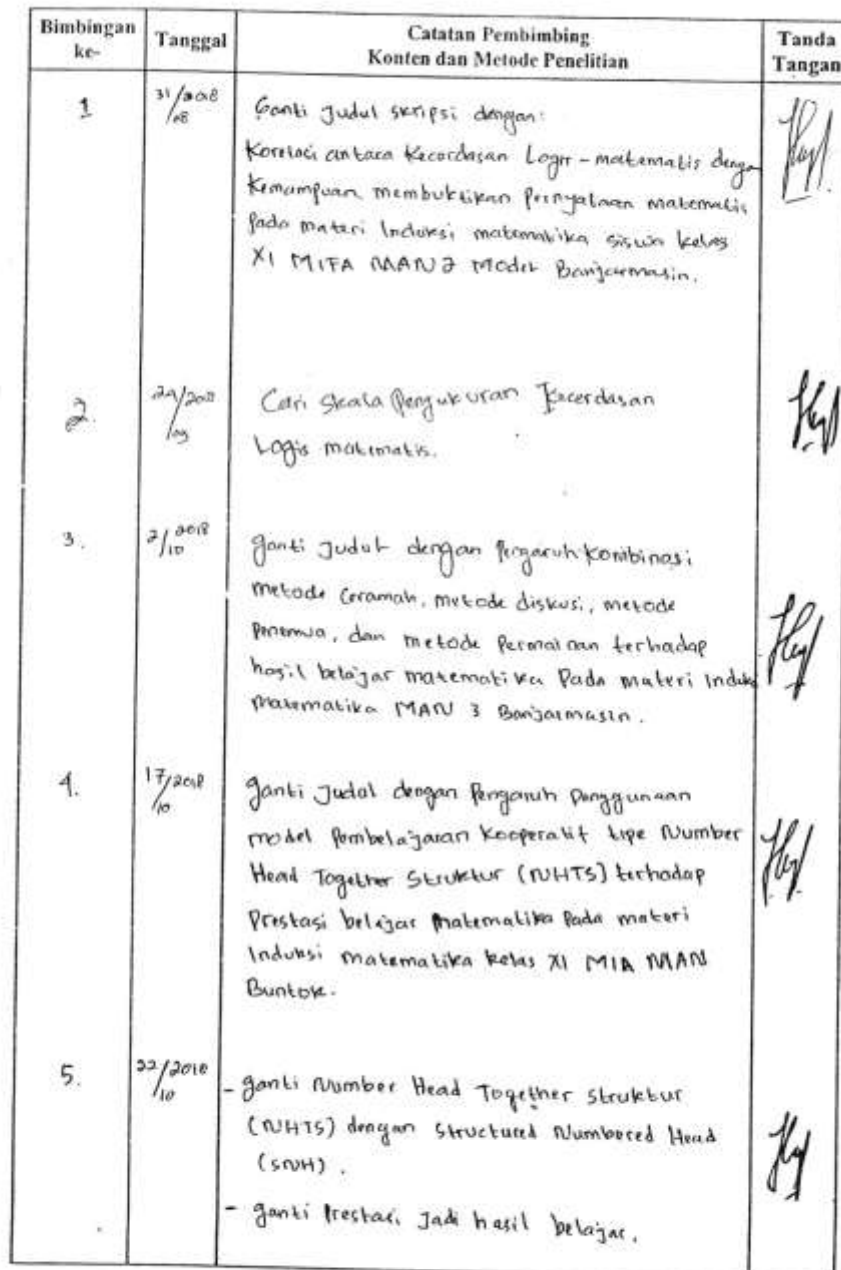 Bimbingan ke- Tanggal Catatan Pembimbing Konten dan Metode Penelitian Tanda Tangan
1 31/2018/08 Ganti Judul skripsi dengan:
Korelasi antara Kecerdasan Logis-matematis dengan
Kemampuan membuktikan Pernyataan matematis
Pada materi Induksi matematika siswa kelas
XI MIPA MAN 2 Model Banjarmasin.
2. /09 Cari Skala Pengukuran Kecerdasan
Logis matematis.
3. 2/2018/10 ganti Judul dengan Pengaruh Kombinasi
metode Ceramah, metode diskusi, metode
dan metode Permainan terhadap
hasil belajar matematika Pada materi Induksi
matematika MAN 3 Banjarmasin.
4. 17/2018/10 ganti Judul dengan Pengaruh Penggunaan
model Pembelajaran Kooperatif tipe Number
Head Together Struktur (NHTS) terhadap
Prestasi belajar Matematika Pada materi
Induksi matematika kelas XI MIA MAN
Buntok.
5. 22/2018/10 - ganti Number Head Together Struktur
(NHTS) dengan Structured Numbered Head
(SNH).
- ganti Prestasi Jadi hasil belajar.